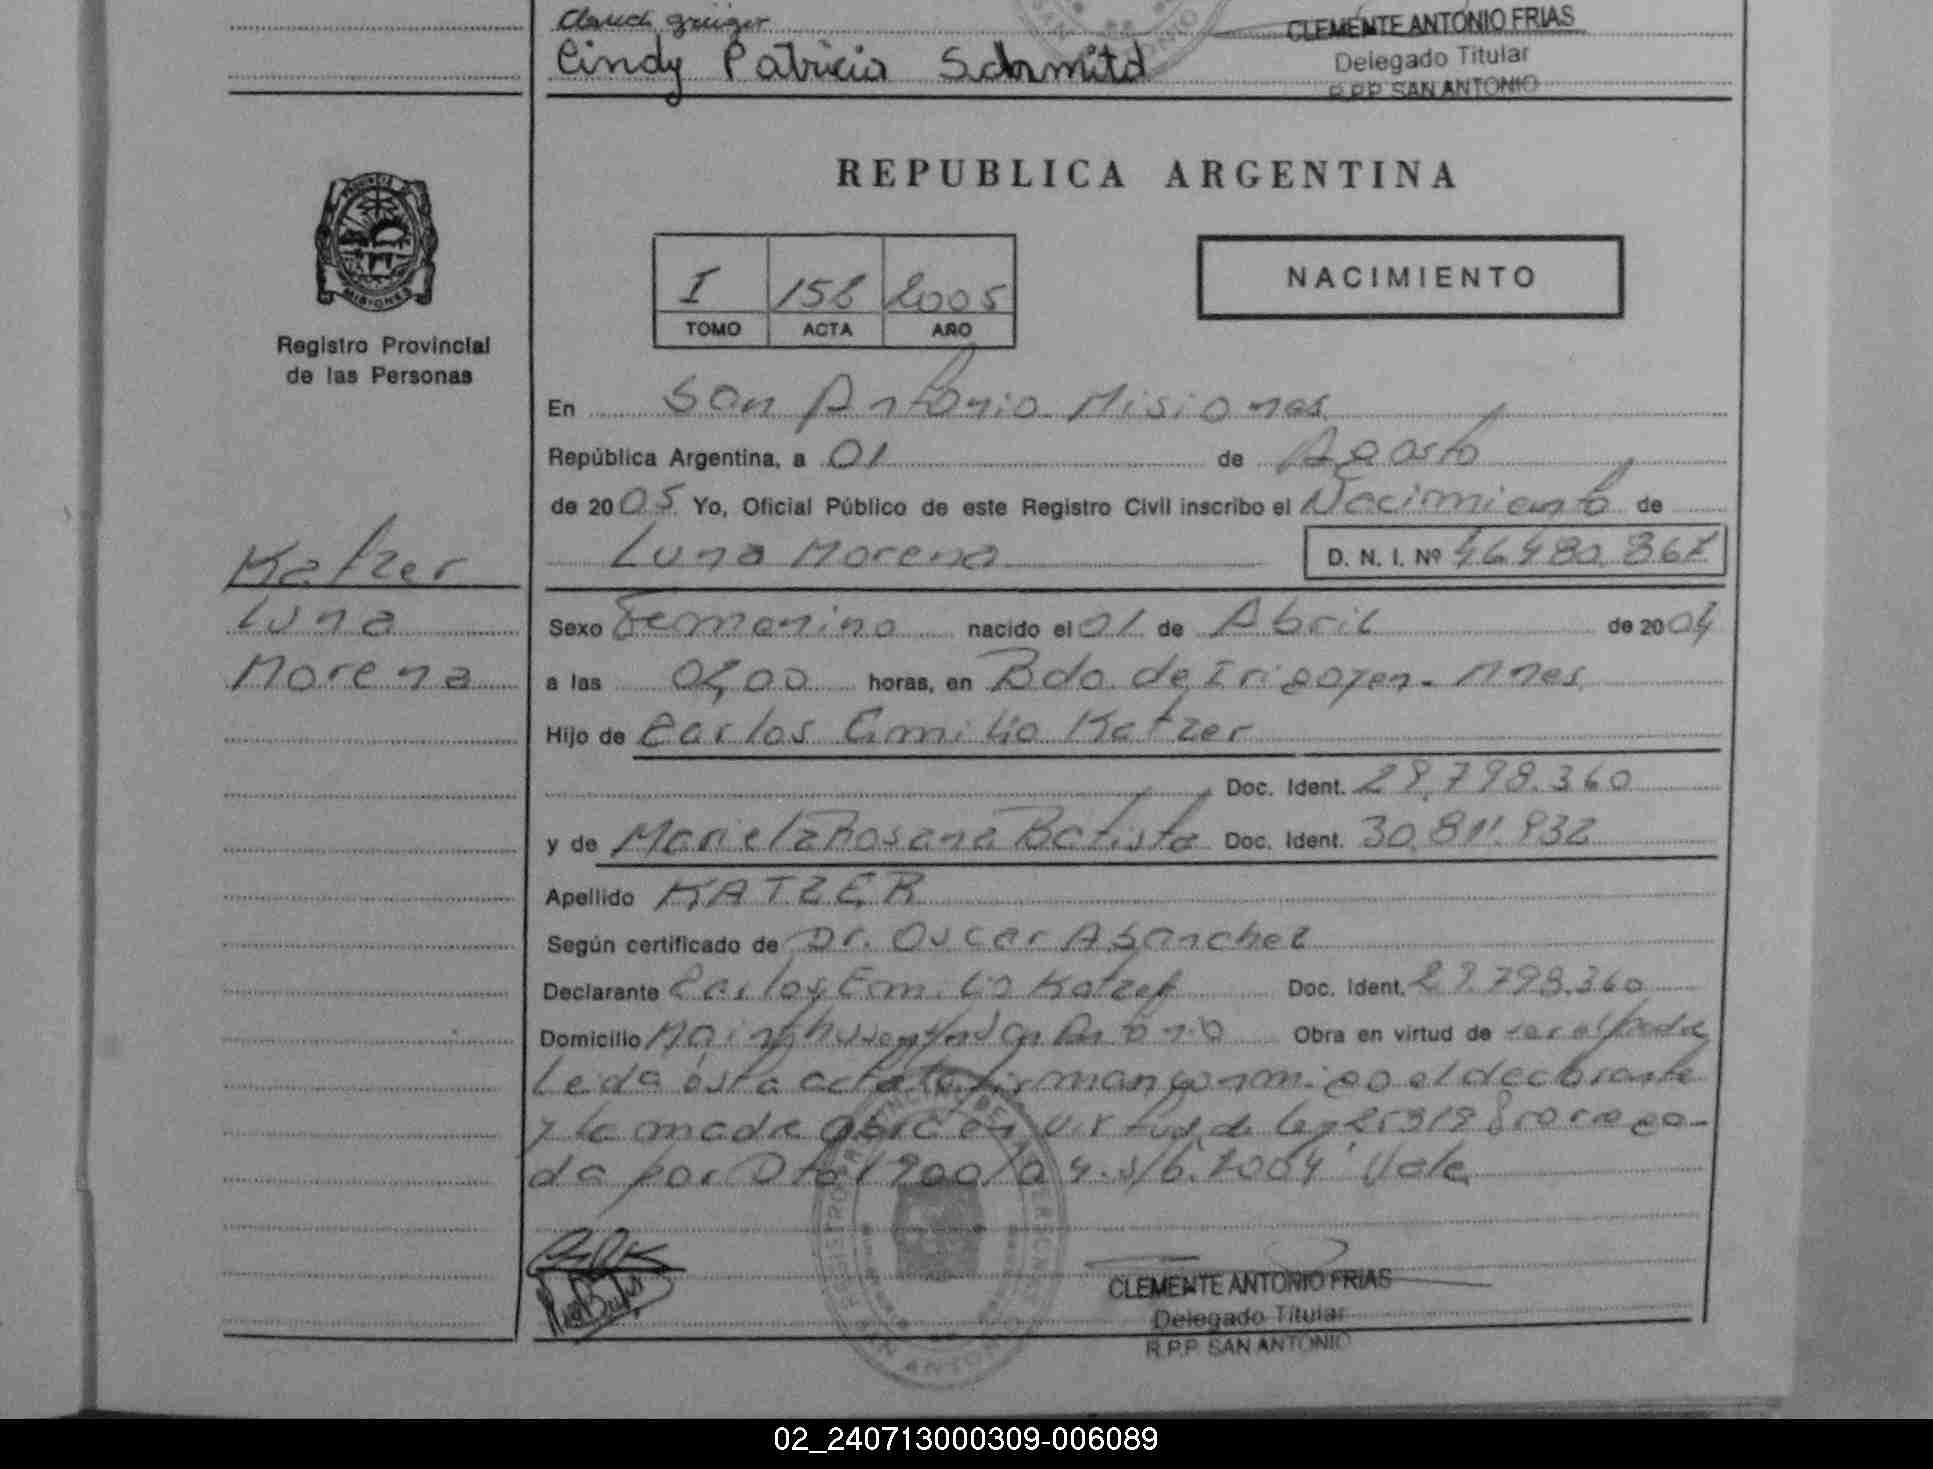 Cindy Patricia Schmitd
CLEMENTE ANTONIO FRIAS
Delegado Titular
R.P.P. SAN ANTONIO
REPUBLICA ARGENTINA
PROVINCIA DE MISIONES
Registro Provincial
de las Personas
I 158 2005
TOMO ACTA AÑO
NACIMIENTO
En San Antonio Misiones
República Argentina, a 01 de Agosto
de 2005 Yo, Oficial Público de este Registro Civil inscribo el Nacimiento de
Luna Morena D. N. I. Nº 46.480.867
Katzer
Luna
Morena
Sexo Femenino nacido el 01 de Abril de 2004
a las horas, en Bdo. de Irigoyen - Mnes
Hijo de Carlos Emilio Katzer
Doc. Ident. 29.798.360
y de Mariela Rosana Batista Doc. Ident. 30.811.932
Apellido KATZER
Según certificado de Dr. Oscar A Sanchez
Declarante Carlos Emilio Katzer Doc. Ident. 29.798.360
Domicilio San Antonio Obra en virtud de ser el padre
Leida esta acta la firman conmigo el declarante
y la madre obra en virtud de Ley 25819 Prorroga-
da por Dto 1900/04. 5/6.2004 Vale
CLEMENTE ANTONIO FRIAS
Delegado Titular
R.P.P. SAN ANTONIO
02_240713000309-006089